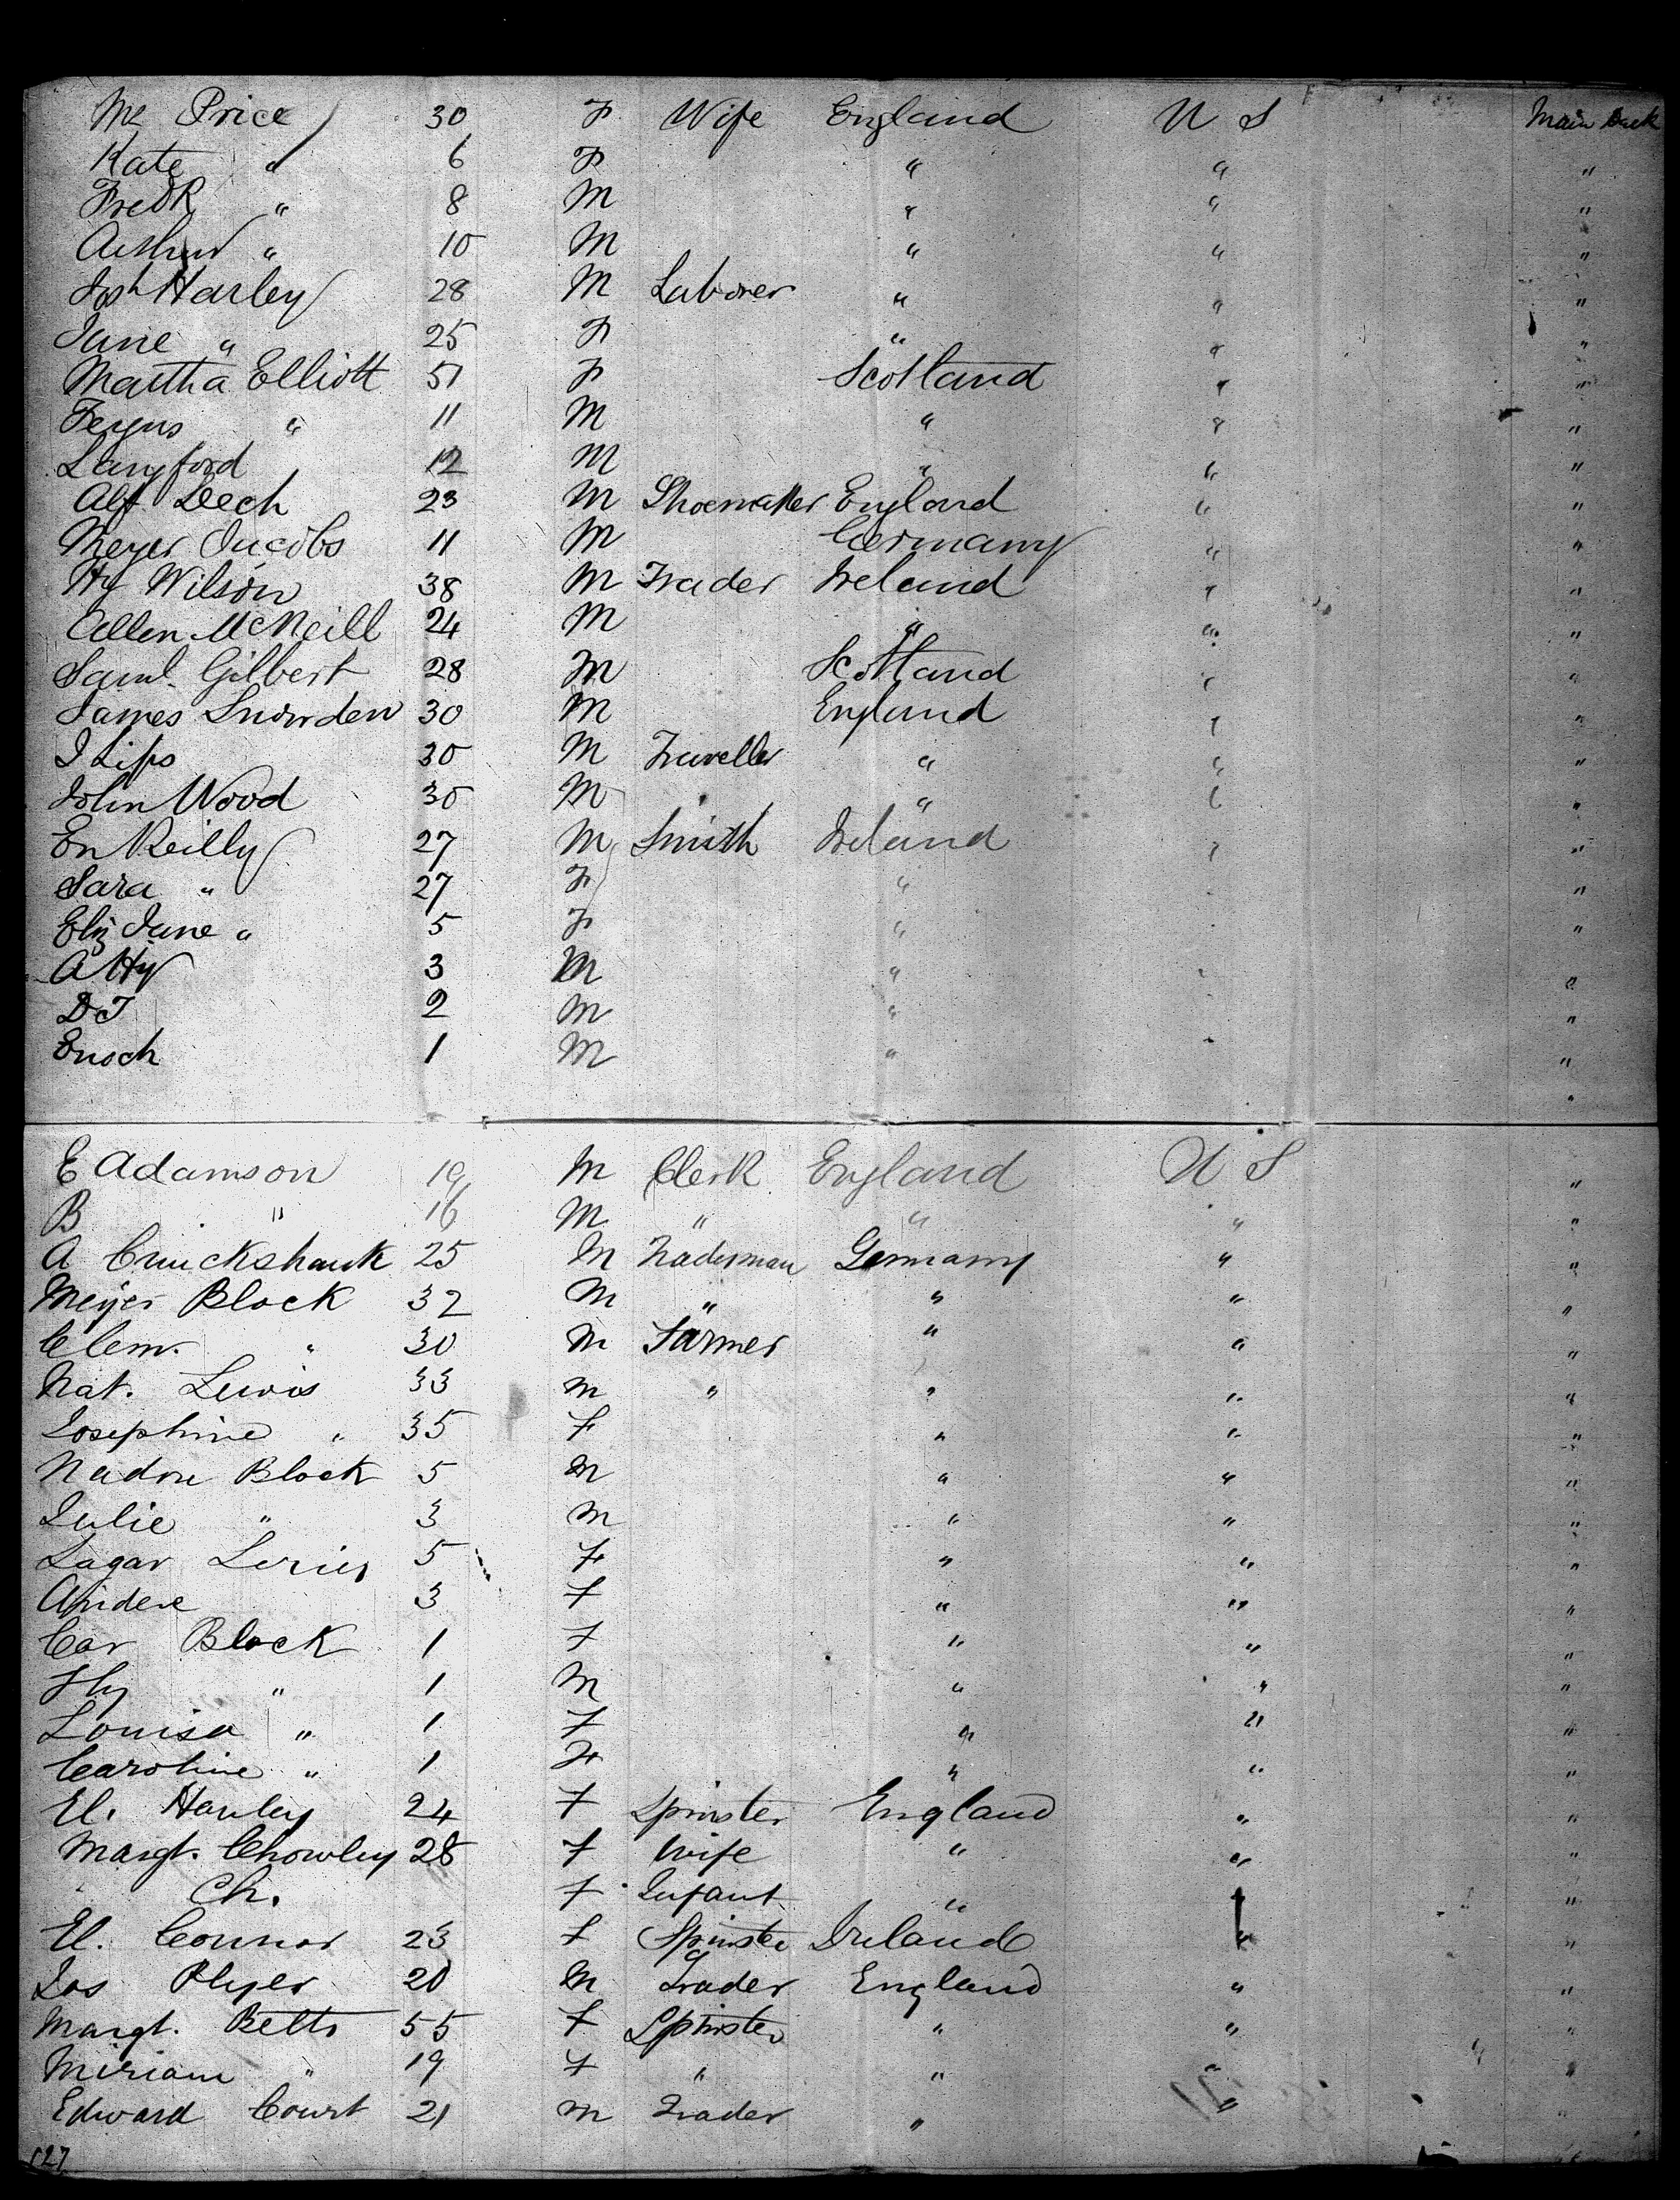 Mr Price 30 F Wife England U S Main Deck
Kate " 6 F " " "
Fredk " 8 M " " "
Arthur " 10 M " " "
Josh Harley 28 M Laborer " " "
Jane " 25 F " " "
Martha Elliott 51 F Scotland " "
Fergus " 11 M " " "
Langford 12 M " " "
Alf Leech 23 M Shoemaker England " "
Meyer Jacobs 11 M Germany " "
Hy Wilson 38 M Trader Ireland " "
Allen McNeill 24 M " " "
Saml. Gilbert 28 M Scotland " "
James Snowden 30 M England " "
I Lips 30 M Traveller " " "
John Wood 30 M " " "
En Reilly 27 M Smith Ireland " "
Sara " 27 F " "
Eliz Jane " 5 F " "
A Hy 3 M " "
D J 2 M " "
Enoch 1 M " "
"
E Adamson 19 M Clerk England U S "
B " 16 M " " " "
A Cruickshank 25 M Tradesman Germany " "
Meyer Block 32 M " " " "
Clem. " 30 M Farmer " " "
Nat. Lewis 33 M " " " "
Josephine " 35 F " " "
Block 5 M " " "
Julie " 3 M " " "
5 F " " "
3 F " " "
Car Block 1 F " " "
Hy " 1 M " " "
Louisa " 1 F " " "
Caroline " 1 F " " "
El. Hanley 24 F Spinster England " "
Margt. Chowley 28 F Wife " " "
" Ch. F Infant " " "
El. Connor 23 F Spinster Ireland " "
Jos Plyer 20 M Trader England " "
Margt. Betts 55 F Spinster " " "
Miriam " 19 F " " " "
Edward Court 21 M Trader " "
127